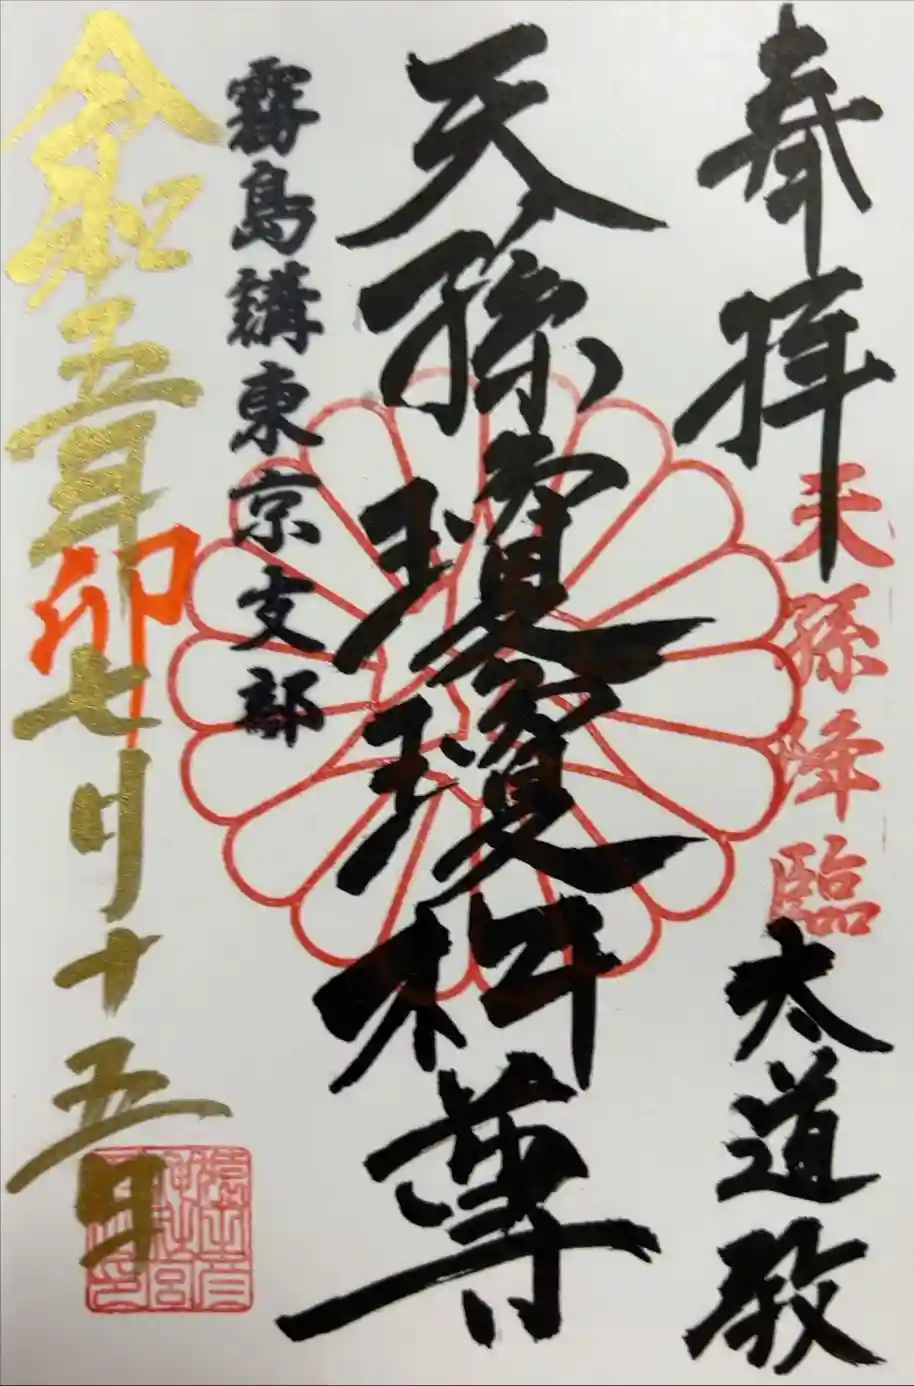 奉拝
天孫降臨
太道教
天孫瓊瓊杵尊
霧島講東京支部
令和五年
卯
七月十五日